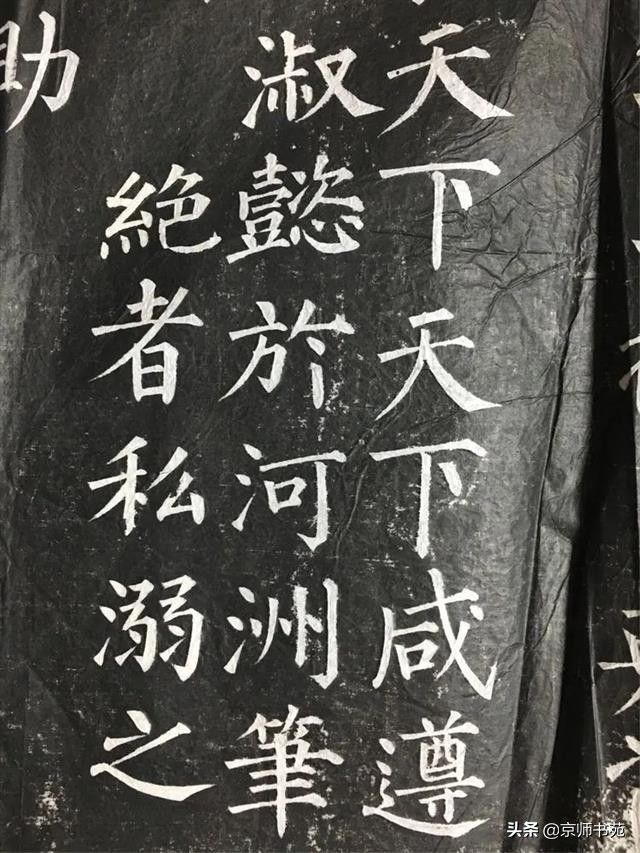 天下天下咸遵
淑懿於河洲筆
絶者私溺之
助
头条 @京师书苑